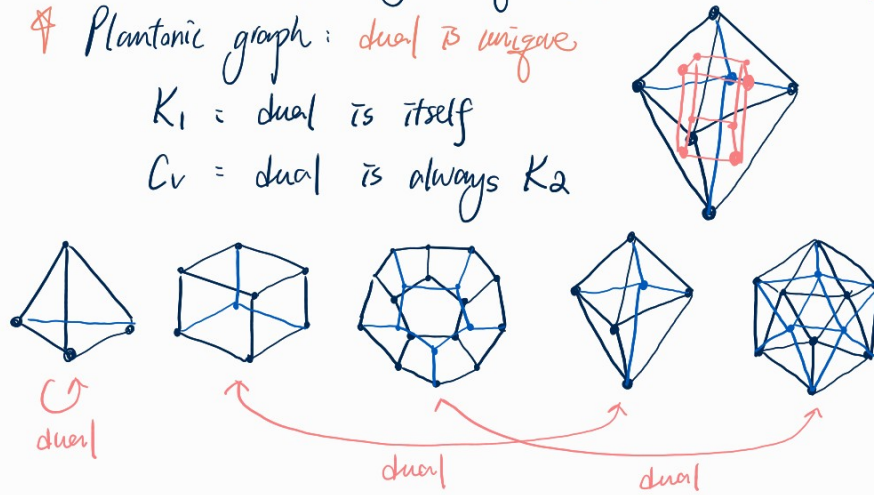 Plantonic graph: dual is unique
K₁ = dual is itself
Cᵥ = dual is always K₂
dual
dual
dual